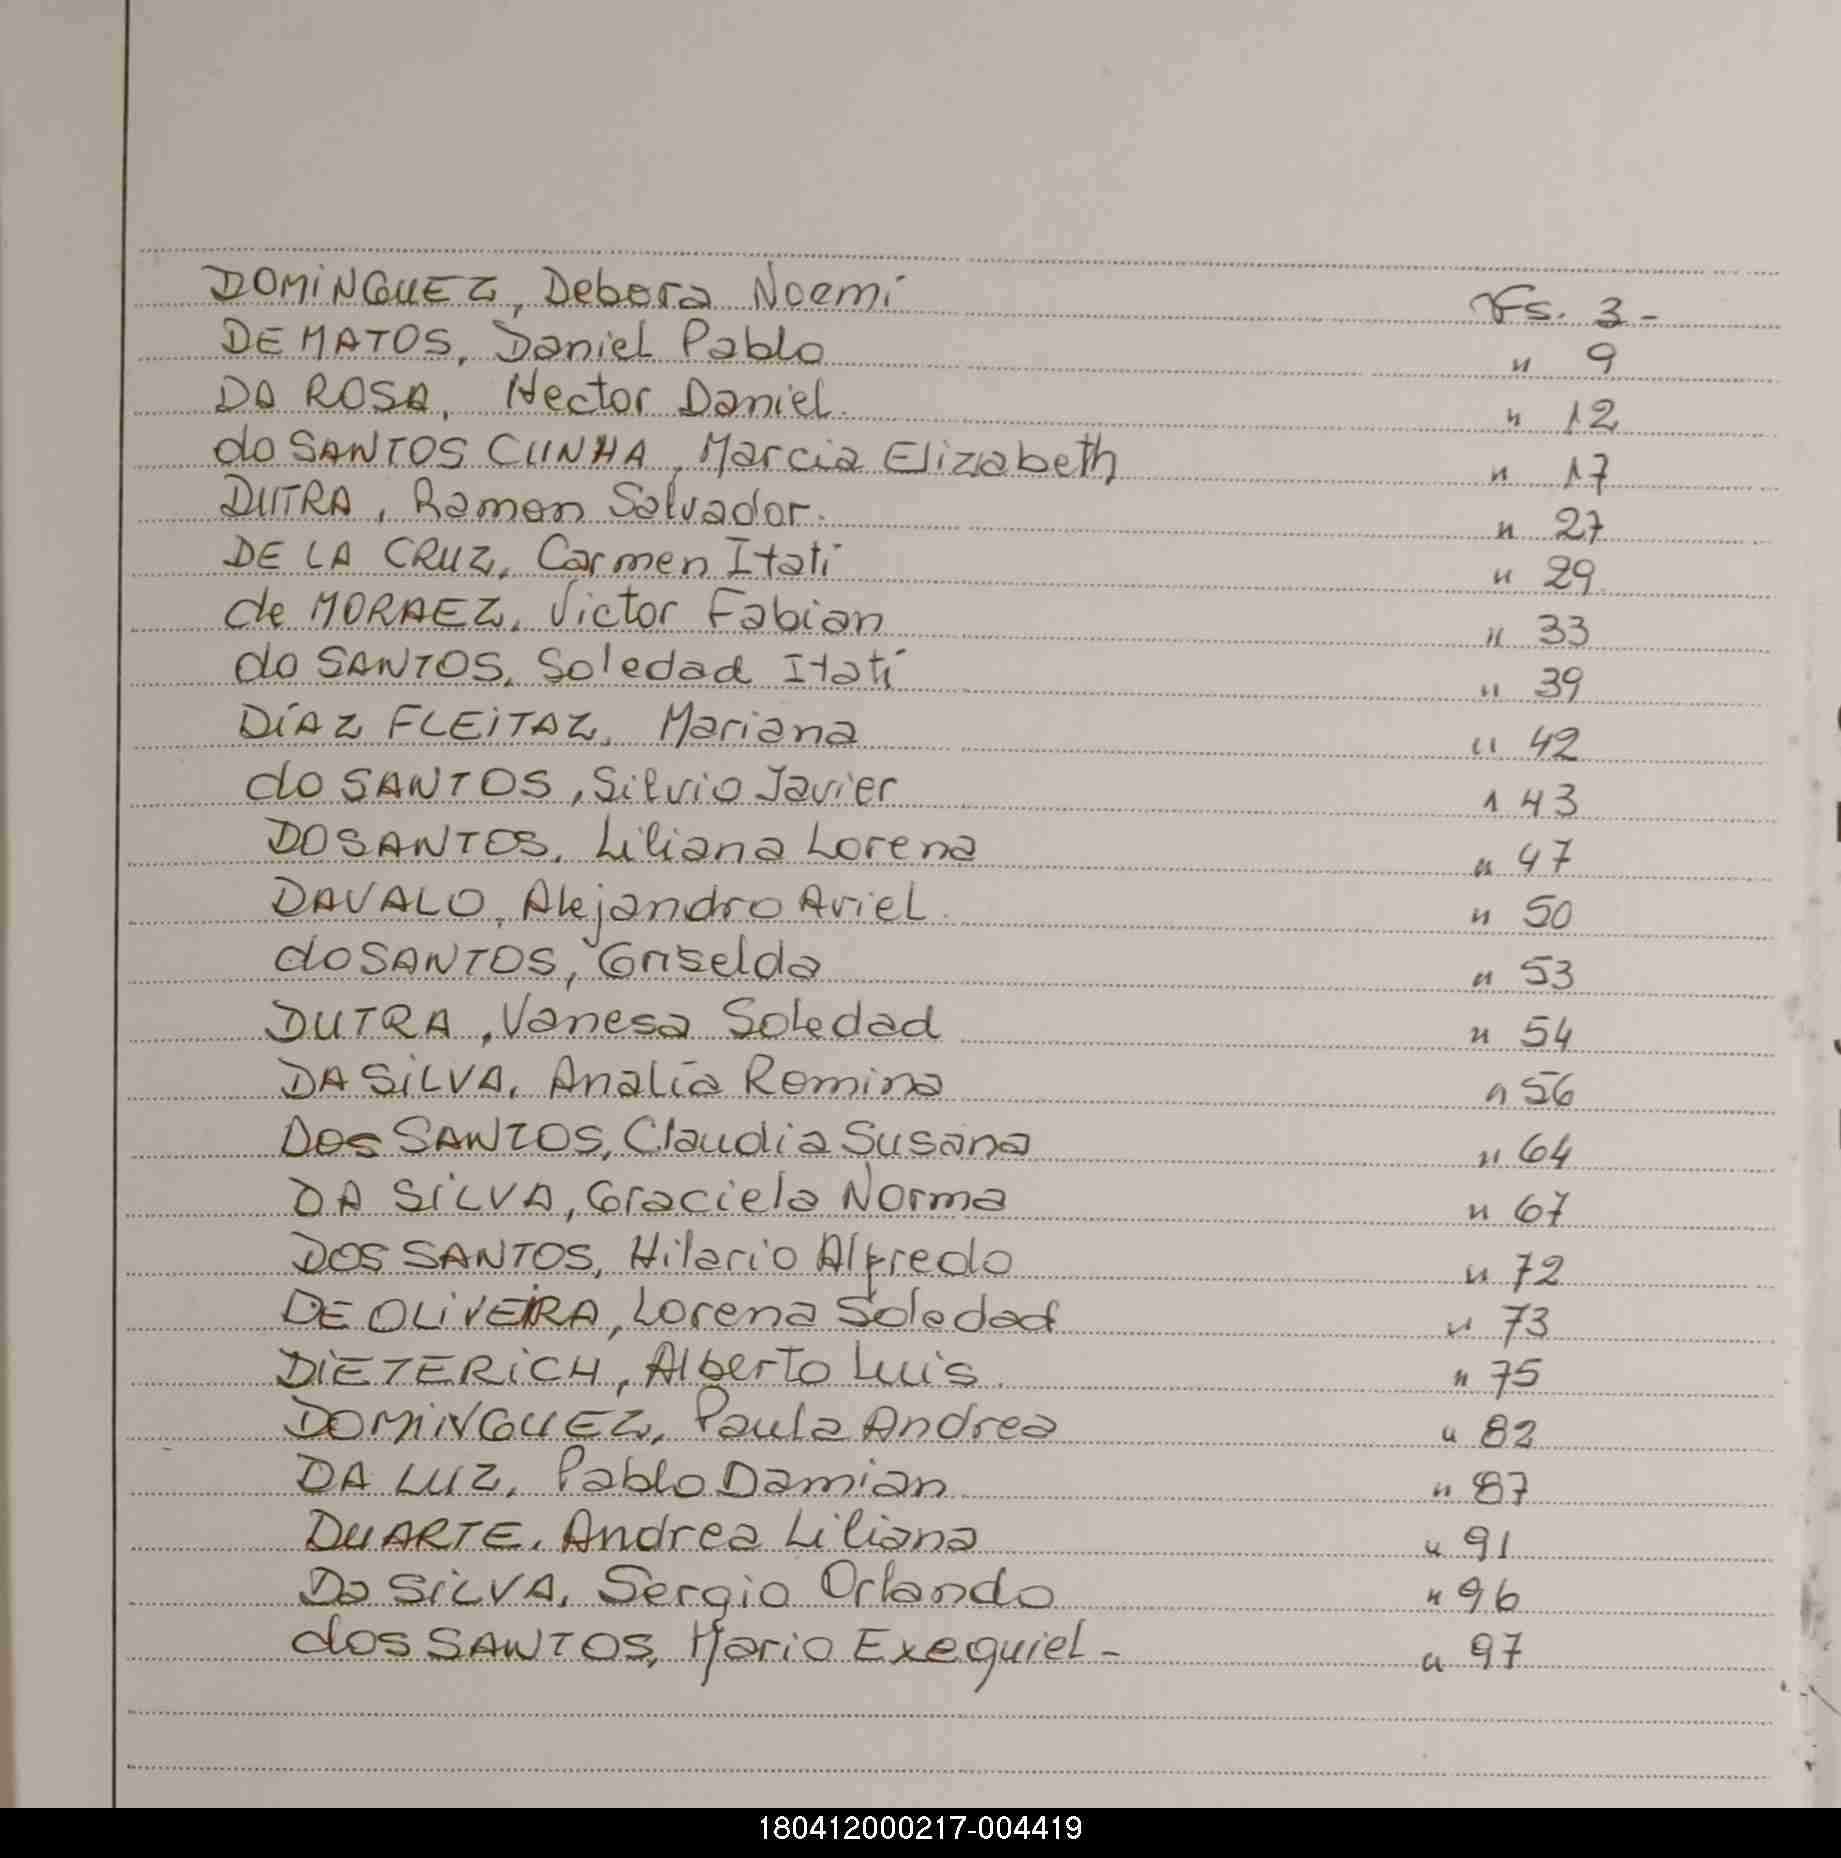 DOMINGUEZ, Debora Noemi Fs. 3-
DE MATOS, Daniel Pablo " 9
DA ROSA, Hector Daniel. " 12
do SANTOS CUNHA, Marcia Elizabeth " 17
DUTRA, Ramon Salvador. " 27
DE LA CRUZ, Carmen Itati " 29
de MORAEZ, Victor Fabian " 33
do SANTOS, Soledad Itatí " 39
DÍAZ FLEITAZ, Mariana " 42
do SANTOS, Silvio Javier " 43
DO SANTOS, Liliana Lorena " 47
DAVALO, Alejandro Ariel. " 50
do SANTOS, Griselda " 53
DUTRA, Vanesa Soledad " 54
DA SILVA, Analía Romina " 56
Dos SANTOS, Claudia Susana " 64
DA SILVA, Graciela Norma " 67
DOS SANTOS, Hilario Alfredo " 72
DE OLIVEIRA, Lorena Soledad " 73
DIETERICH, Alberto Luis. " 75
DOMINGUEZ, Paula Andrea " 82
DA LUZ, Pablo Damian " 87
DUARTE, Andrea Liliana " 91
Da SILVA, Sergio Orlando " 96
dos SANTOS, Mario Exequiel - " 97
180412000217-004419